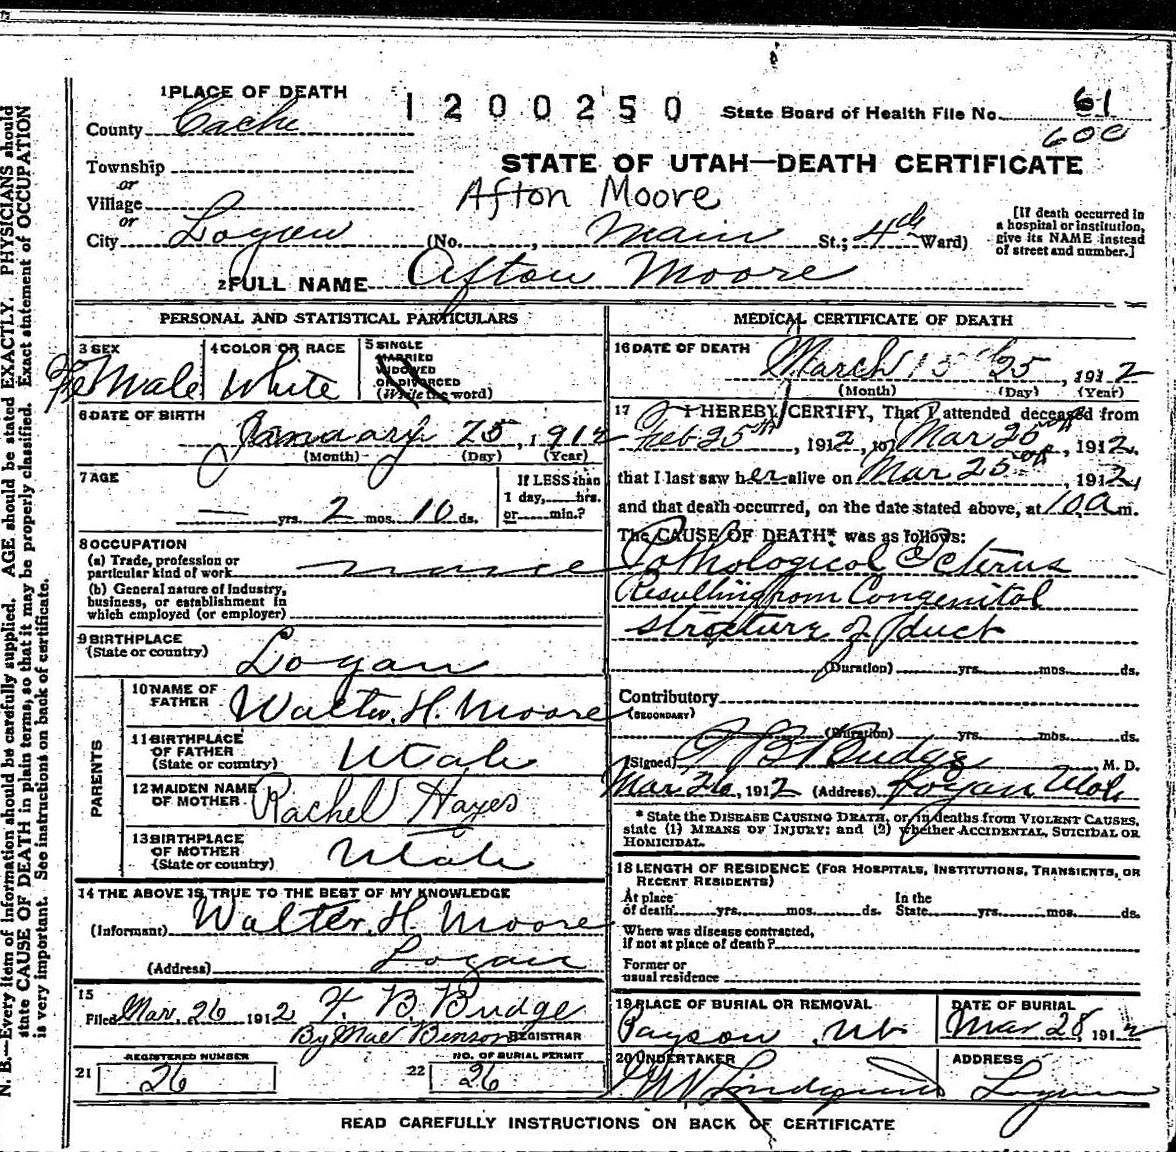 1 PLACE OF DEATH
1200250
State Board of Health File No. 61
600
County Cache
STATE OF UTAH—DEATH CERTIFICATE
Township
or
Village
Afton Moore
or
City Logan (No. , Main St.; 4th Ward)
[If death occurred in
a hospital or institution,
give its NAME instead
of street and number.]
2 FULL NAME Afton Moore
PERSONAL AND STATISTICAL PARTICULARS
3 SEX
Female
4 COLOR OR RACE
White
5 SINGLE
MARRIED
WIDOWED
OR DIVORCED
(Write the word)
6 DATE OF BIRTH
January 25, 1912
(Month) (Day) (Year)
7 AGE
— yrs. 2 mos. 10 ds.
If LESS than
1 day, hrs.
or min.?
8 OCCUPATION
(a) Trade, profession or
particular kind of work none
(b) General nature of Industry,
business, or establishment in
which employed (or employer)
9 BIRTHPLACE
(State or country) Logan
PARENTS
10 NAME OF
FATHER Walter. H. Moore
11 BIRTHPLACE
OF FATHER
(State or country) Utah
12 MAIDEN NAME
OF MOTHER Rachel Hayes
13 BIRTHPLACE
OF MOTHER
(State or country) Utah
14 THE ABOVE IS TRUE TO THE BEST OF MY KNOWLEDGE
(Informant) Walter. H. Moore
(Address) Logan
15
Filed Mar. 26 1912 F. B. Budge
By Mae Benson REGISTRAR
REGISTERED NUMBER
21 26
NO. OF BURIAL PERMIT
22 26
MEDICAL CERTIFICATE OF DEATH
16 DATE OF DEATH
March 25, 1912
(Month) (Day) (Year)
17 I HEREBY CERTIFY, That I attended deceased from
Feb 25th, 1912, to Mar 25th, 1912,
that I last saw her alive on Mar 25th, 1912,
and that death occurred, on the date stated above, at 10 a m.
The CAUSE OF DEATH* was as follows:
Pathological Icterus
Resulting from Congenital
stricture of duct
(Duration) yrs. mos. ds.
Contributory
(SECONDARY)
(Duration) yrs. mos. ds.
(Signed) B Budge M. D.
Mar 26, 1912 (Address) Logan Utah
* State the DISEASE CAUSING DEATH, or, in deaths from VIOLENT CAUSES,
state (1) MEANS OF INJURY; and (2) whether ACCIDENTAL, SUICIDAL OR
HOMICIDAL.
18 LENGTH OF RESIDENCE (FOR HOSPITALS, INSTITUTIONS, TRANSIENTS, OR
RECENT RESIDENTS)
At place
of death yrs. mos. ds.
In the
State yrs. mos. ds.
Where was disease contracted,
if not at place of death?
Former or
usual residence
19 PLACE OF BURIAL OR REMOVAL
Payson, Ut
DATE OF BURIAL
Mar 28, 1912
20 UNDERTAKER
Lindquist
ADDRESS
Logan
READ CAREFULLY INSTRUCTIONS ON BACK OF CERTIFICATE
N. B.—Every item of information should be carefully supplied. AGE should be stated EXACTLY. PHYSICIANS should
state CAUSE OF DEATH in plain terms, so that it may be properly classified. Exact statement of OCCUPATION
is very important. See instructions on back of certificate.